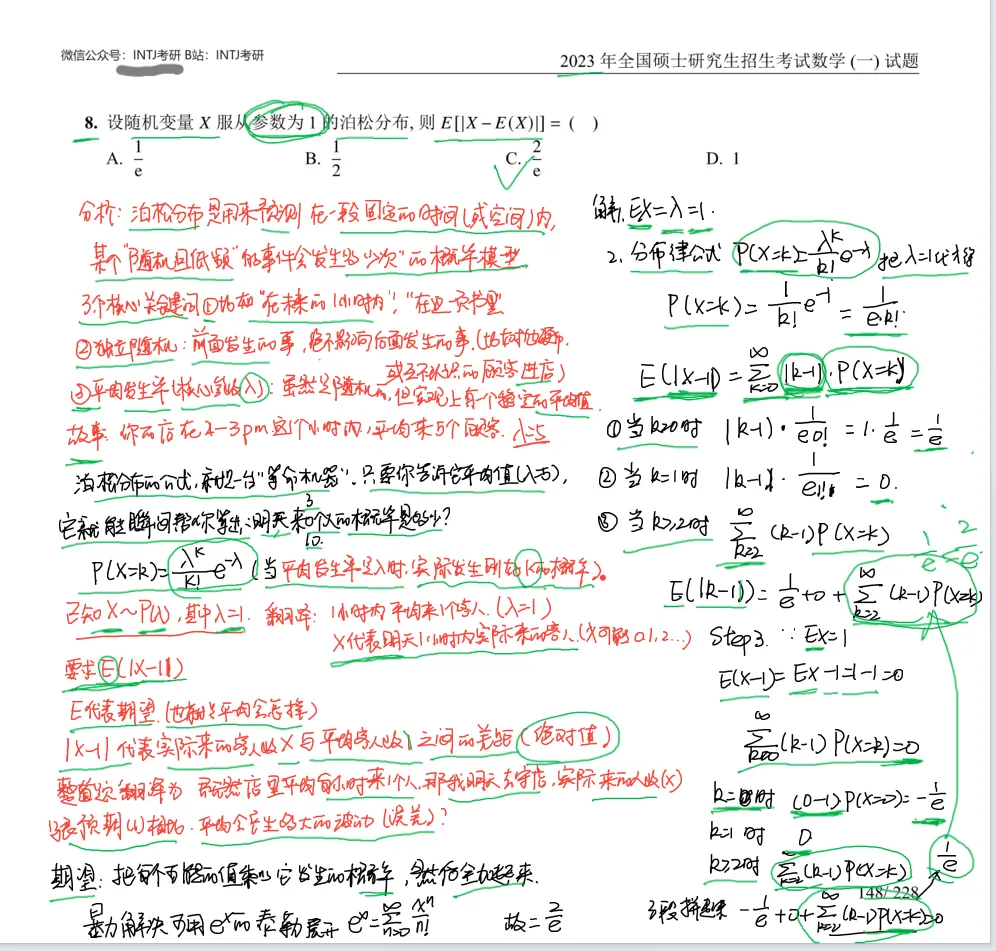 微信公众号：INTJ考研 B站：INTJ考研
2023 年全国硕士研究生招生考试数学 (一) 试题
8. 设随机变量 X 服从参数为 1 的泊松分布, 则 E[|X − E(X)|] = ( )
A. 1/e B. 1/2 C. 2/e D. 1
分析：泊松分布是用来预测 在一段固定的时间(或空间)内,
某个"随机且低频"的事件会发生"多少次"的概率模型
3个核心关键词 ①比如"在未来的1小时内","在这一页书里"
②独立随机：前面发生的事, 绝不影响后面发生的事.
或互不认识的顾客进店)
③平均发生率(核心参数λ)：虽然是随机的, 但宏观上有个稳定的平均值.
故事：你的店在2-3pm这个小时内, 平均来5个顾客. λ=5
泊松分布的公式, 就是一台"算命机器". 只要你告诉它平均值(λ=5),
它就能瞬间帮你算出：明天来3个人的概率是多少?
10.
P(X=k)= λ^k/k! e^-λ (当平均发生率是λ时, 实际发生刚好k的概率)。
已知 X~P(1), 其中λ=1. 翻译：1小时内平均来1个客人. (λ=1)
X代表明天1小时内实际来的客人. (X可能0.1.2…)
要求E(|X-1|)
E代表期望. (也就是平均会怎样)
|X-1| 代表实际来的客人数X与平均客人数1之间的差距 (绝对值)
整道题翻译为 虽然店里平均每小时来1个人, 那我明天去守店, 实际来的人数(X)
跟预期(1)相比. 平均会产生多大的波动 (误差)?
期望：把每个可能的值乘以它发生的概率, 然后全加起来.
暴力解决可用e^x的泰勒展开 e^x=∑(n=0→∞) x^n/n! 故= 2/e
解. EX=λ=1.
2. 分布律公式 P(X=k)= λ^k/k! e^-λ 把λ=1代得
P(X=k)= 1/k! e^-1 = 1/(e·k!)
E(|X-1|)=∑(k=0→∞) |k-1|·P(X=k)
①当k=0时 |k-1|· 1/(e·0!) =1· 1/e = 1/e
②当k=1时 |k-1|· 1/(e·1!) = 0.
③当k≥2时 ∑(k=2→∞) (k-1)P(X=k)
1/e 2/e
E(|k-1|)= 1/e +0+ ∑(k=2→∞) (k-1)P(X=k)
Step3. ∵EX=1
E(X-1)= EX-1=1-1=0
∑(k=0→∞) (k-1) P(X=k)=0
k=0时 (0-1)P(X=0)= -1/e
k=1时 0
k≥2时 ∑(k=2) (k-1)P(X=k) 1/e
148/ 228
3段拼起来 -1/e +0+ ∑(k=2→∞) (k-1)P(X=k)=0